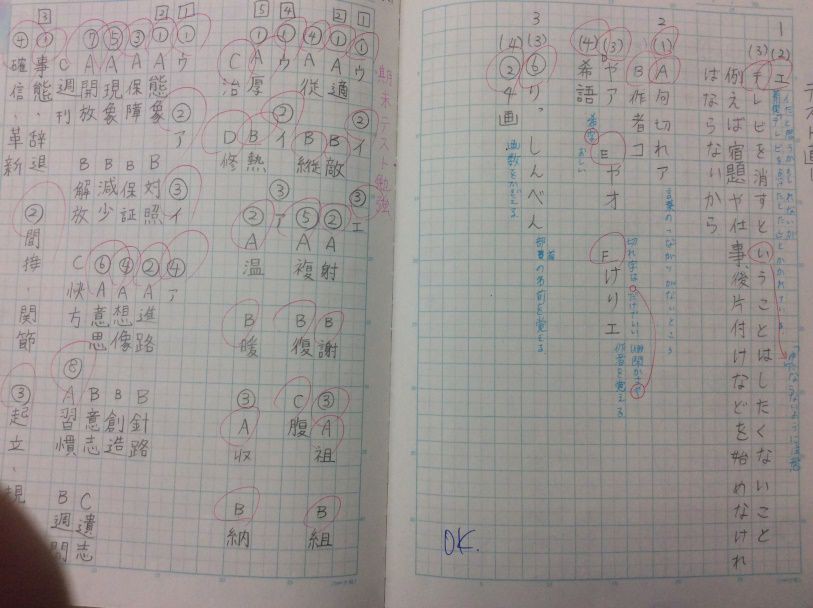 テスト
1
(2) エ
(3) テレビを消すということはしたくないこと
例えば宿題や仕事、後片付けなどを始めなけれ
ばならないから
2
(1) A 句切れ ア
言葉のつながりがないところ
B 作者 コ
(3) D や ア E や オ F けり エ
作者を覚える
(4) 希語
3
(3) ⑥ りっしんべん
部首の名前を覚える
(4) ② 4画
画数をかぞえる
OK.
期末テスト勉強
1 ① ウ ② イ ③ エ
2 ① A 適 B 敵 ② A 射 B 謝 ③ A 祖 B 組
④ A 従 B 縦 ⑤ A 複 B 復 C 腹
4 ① ウ ② イ ③ ア
5 ① A 厚 B 熱 ② A 温 B 暖 ③ A 収 B 納
C 治 D 修
1 ① ウ ② ア ③ イ ④ ア
2 ① A 態象 B 対照 ② A 進路 B 針路
③ A 保障 B 保証 ④ A 想像 B 創造
⑤ A 現象 B 減少 ⑥ A 意思 B 意志 C 遺志
⑦ A 開放 B 解放 C 快方 ⑧ A 習慣 B 週間
C 週刊
3 ① 事態、辞退 ② 間接、関節 ③ 起立、規
④ 確信、革新